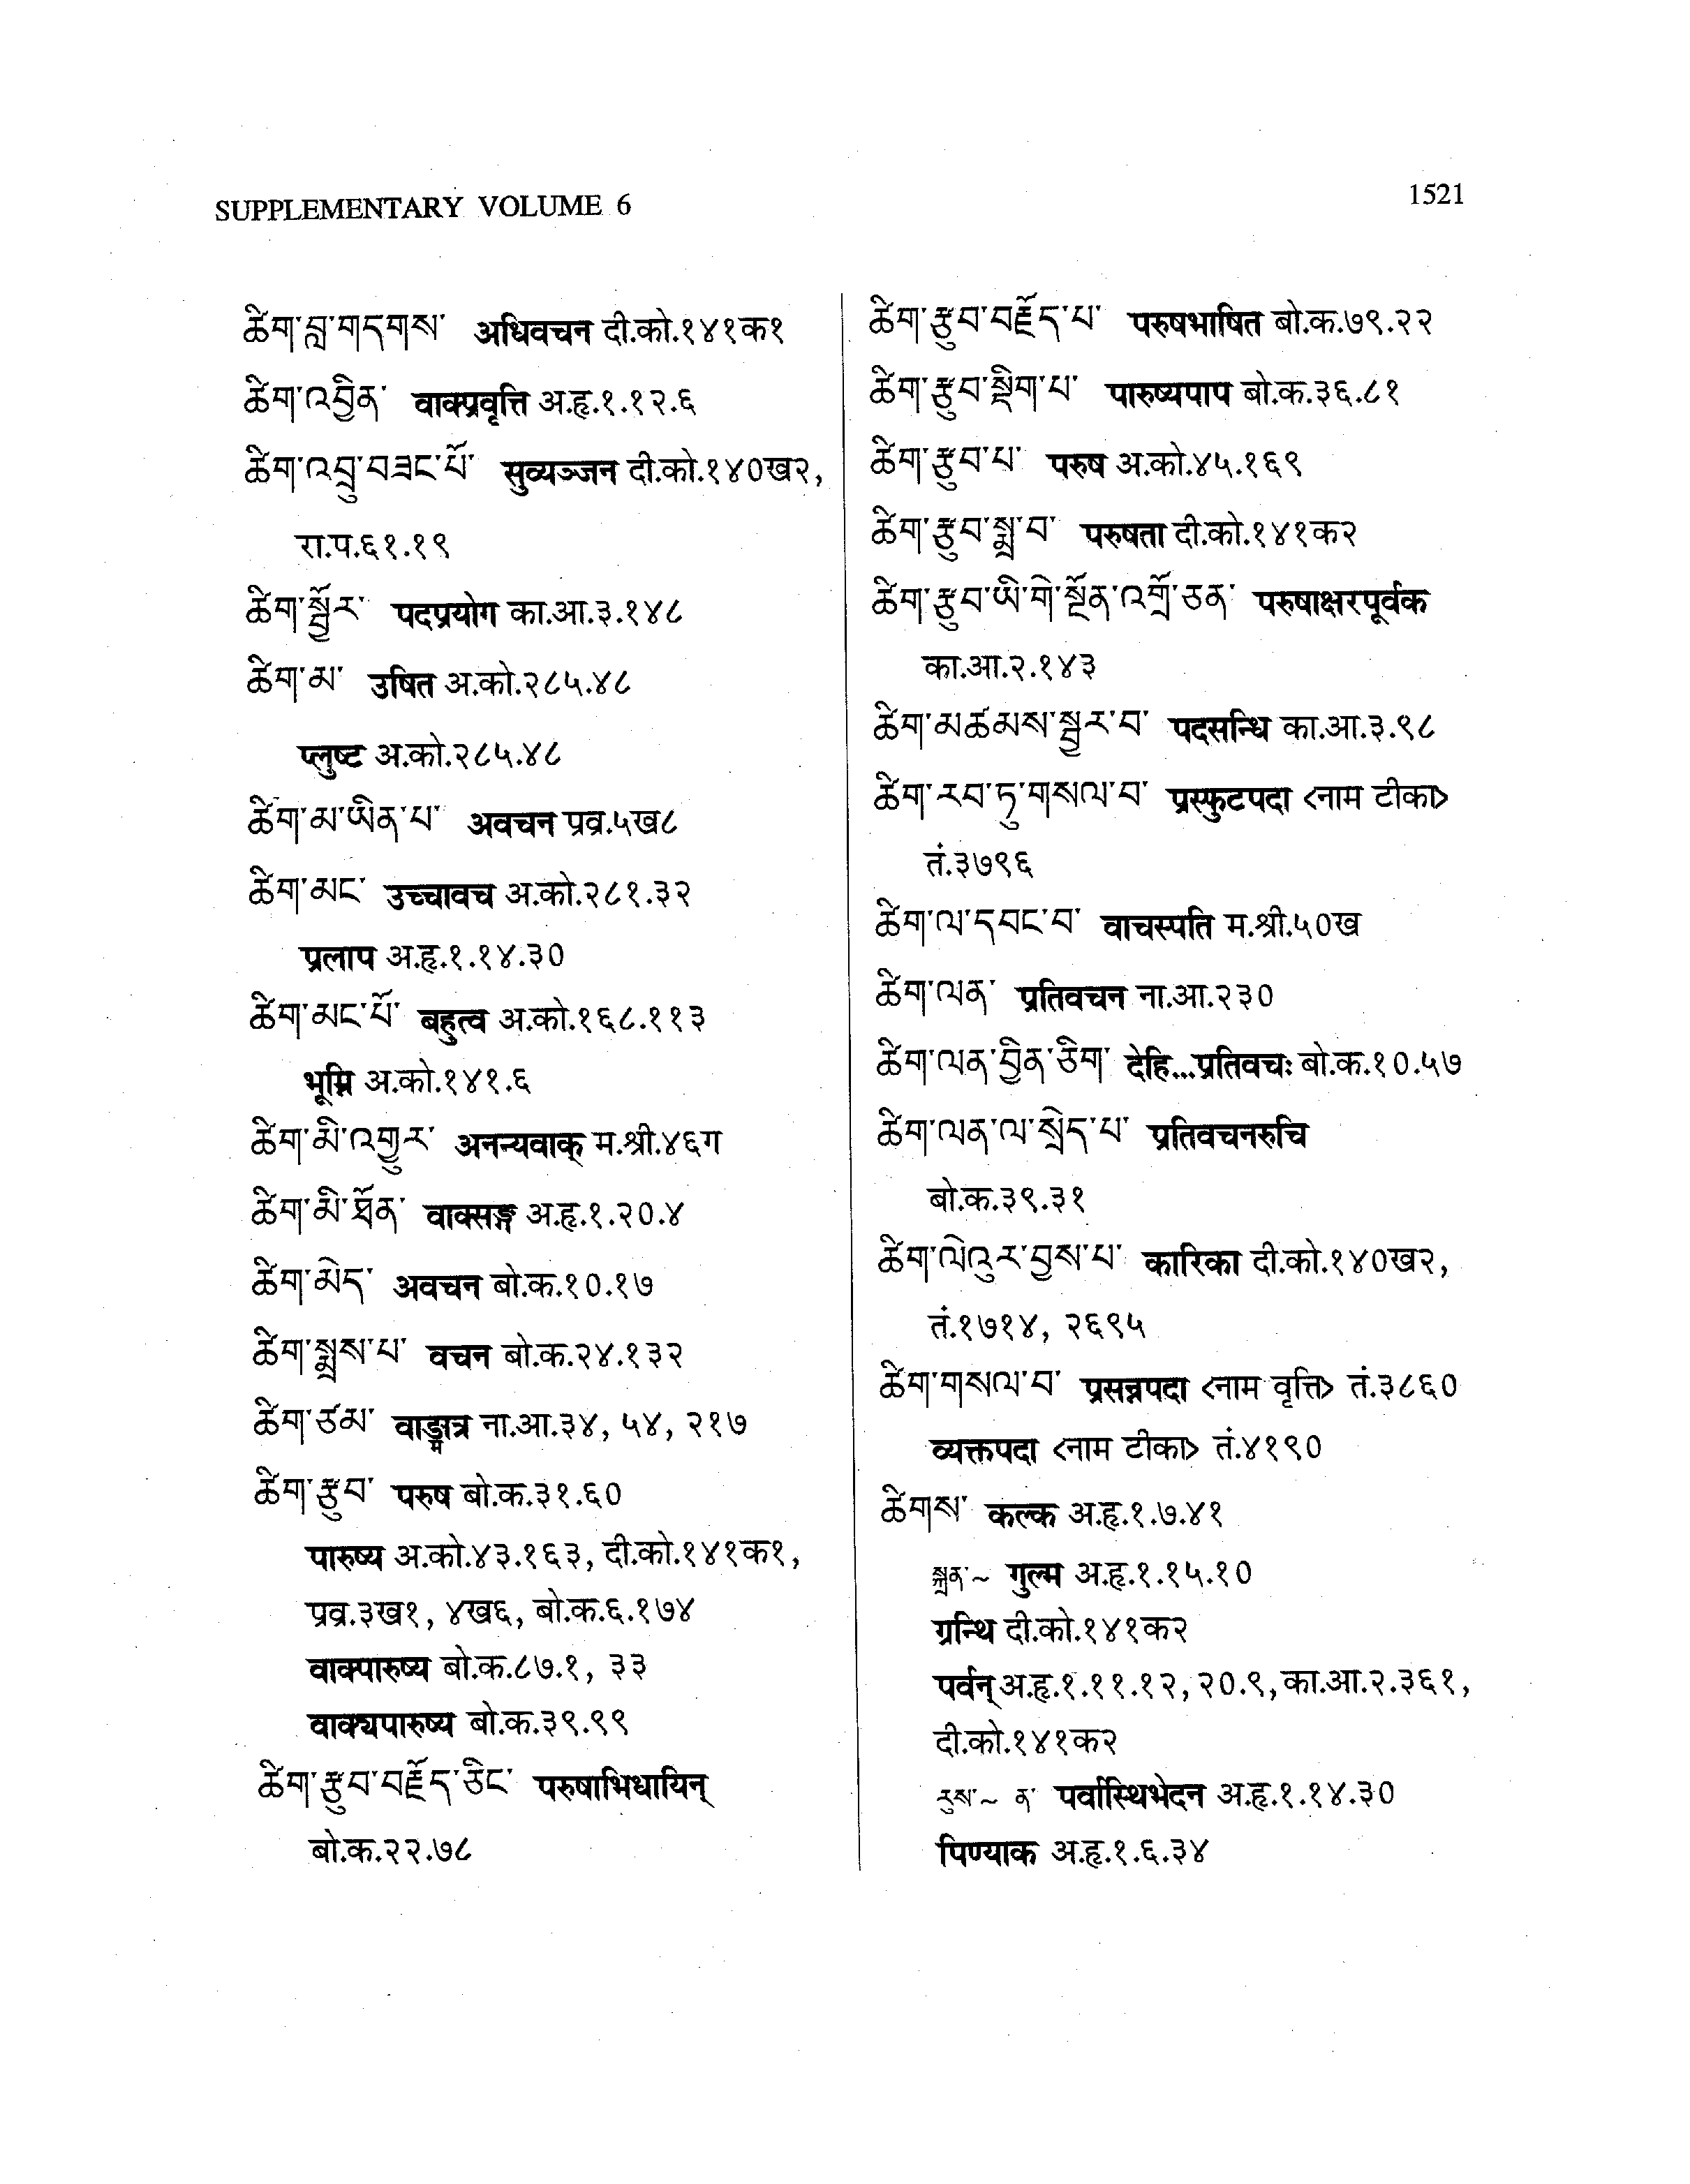 SUPPLEMENTARY VOLUME 6
1521
ཚིག་བླ་གདགས་ अधिवचन दी.को.१४१क१
ཚིག་འབྱིན་ वाक्प्रवृत्ति अ.हृ.१.१२.६
ཚིག་འབྲུ་བཟང་པོ་ सुव्यञ्जन दी.को.१४०ख२,
रा.प.६१.१९
ཚིག་སྦྱོར་ पदप्रयोग का.आ.३.१४८
ཚིག་མ་ उषित अ.को.२८५.४८
प्लुष्ट अ.को.२८५.४८
ཚིག་མ་ཡིན་པ་ अवचन प्रव्र.५ख८
ཚིག་མང་ उच्चावच अ.को.२८१.३२
प्रलाप अ.हृ.१.१४.३०
ཚིག་མང་པོ་ बहुत्व अ.को.१६८.११३
भूम्नि अ.को.१४१.६
ཚིག་མི་འགྱུར་ अनन्यवाक् म.श्री.४६ग
ཚིག་མི་ཐོན་ वाक्सङ्ग अ.हृ.१.२०.४
ཚིག་མེད་ अवचन बो.क.१०.१७
ཚིག་སྨྲས་པ་ वचन बो.क.२४.१३२
ཚིག་ཙམ་ वाङ्मात्र ना.आ.३४, ५४, २१७
ཚིག་རྩུབ་ परुष बो.क.३१.६०
पारुष्य अ.को.४३.१६३, दी.को.१४१क१,
प्रव्र.३ख१, ४ख६, बो.क.६.१७४
वाक्पारुष्य बो.क.८७.१, ३३
वाक्यपारुष्य बो.क.३९.९९
ཚིག་རྩུབ་བརྗོད་ཅིང་ परुषाभिधायिन्
बो.क.२२.७८
ཚིག་རྩུབ་བརྗོད་པ་ परुषभाषित बो.क.७९.२२
ཚིག་རྩུབ་སྡིག་པ་ पारुष्यपाप बो.क.३६.८१
ཚིག་རྩུབ་པ་ परुष अ.को.४५.१६९
ཚིག་རྩུབ་སྨྲ་བ་ परुषता दी.को.१४१क२
ཚིག་རྩུབ་ཡི་གེ་སྔོན་འགྲོ་ཅན་ परुषाक्षरपूर्वक
का.आ.२.१४३
ཚིག་མཚམས་སྦྱར་བ་ पदसन्धि का.आ.३.९८
ཚིག་རབ་ཏུ་གསལ་བ་ प्रस्फुटपदा <नाम टीका>
तं.३७९६
ཚིག་ལ་དབང་བ་ वाचस्पति म.श्री.५०ख
ཚིག་ལན་ प्रतिवचन ना.आ.२३०
ཚིག་ལན་བྱིན་ཅིག་ देहि...प्रतिवचः बो.क.१०.५७
ཚིག་ལན་ལ་སྲེད་པ་ प्रतिवचनरुचि
बो.क.३९.३१
ཚིག་ལེའུར་བྱས་པ་ कारिका दी.को.१४०ख२,
तं.१७१४, २६९५
ཚིག་གསལ་བ་ प्रसन्नपदा <नाम वृत्ति> तं.३८६०
व्यक्तपदा <नाम टीका> तं.४१९०
ཚིགས་ कल्क अ.हृ.१.७.४१
སྐྲན་~ गुल्म अ.हृ.१.१५.१०
ग्रन्थि दी.को.१४१क२
पर्वन् अ.हृ.१.११.१२, २०.९, का.आ.२.३६१,
दी.को.१४१क२
རུས་~ ན་ पर्वास्थिभेदन अ.हृ.१.१४.३०
पिण्याक अ.हृ.१.६.३४